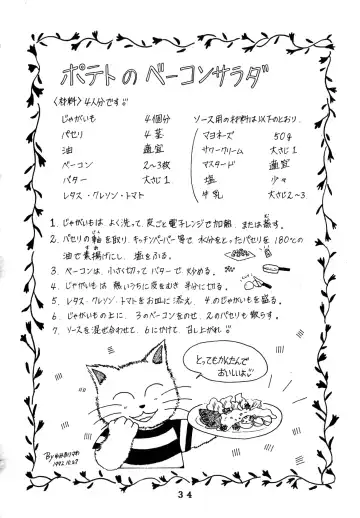 ポテトの ベーコンサラダ
〈材料〉4人分です!!
じゃがいも 4個分
パセリ 4茎
油 適宜
ベーコン 2〜3枚
バター 大さじ1
レタス・クレソン・トマト
ソース用の材料は以下のとおり
マヨネーズ 50g
サワークリーム 大さじ1
マスタード 適宜
塩 少々
牛乳 大さじ2〜3
1. じゃがいもは よく洗って、皮ごと電子レンジで加熱、または蒸す。
2. パセリの軸を取り、キッチンペーパー等で 水分をとったパセリを 180℃の
油で素揚げにし、塩をふる。
3. ベーコンは、小さく切って バターで 炒める。
4. じゃがいもは 熱いうちに皮をむき 半分に切る。
5. レタス・クレソン・トマトをお皿に添え、4.のじゃがいもを盛る。
6. じゃがいもの上に、3のベーコンをのせ、2のパセリも散らす。
7. ソースを混ぜ合わせて、6にかけて、召し上がれ
とってもかんたんで
おいしいよ
1992.10.27
34